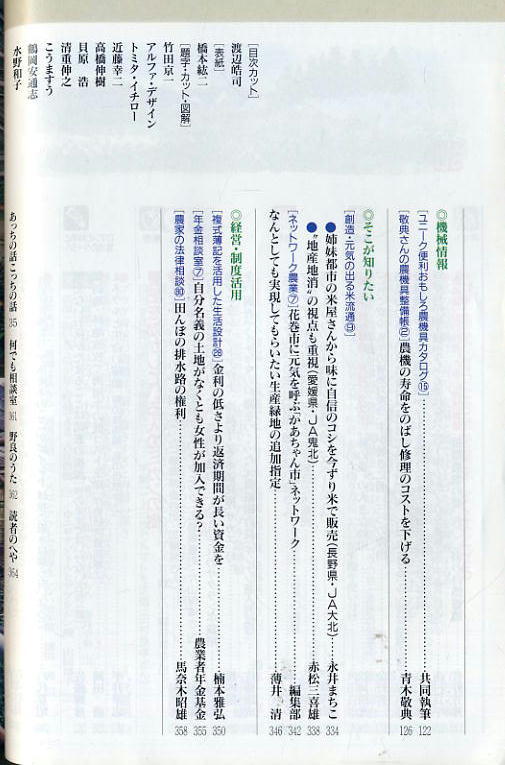 ◎機械情報
[ユニーク便利おもしろ農機具カタログ⑮]……共同執筆 122
[敬典さんの農機具整備帳②]農機の寿命をのばし修理のコストを下げる……青木敬典 126
◎そこが知りたい
[創造・元気の出る米流通⑨]
●姉妹都市の米屋さんから味に自信のコシを今ずり米で販売(長野県・JA大北)…永井まちこ 334
●“地産地消”の視点も重視(愛媛県・JA鬼北)……赤松三喜雄 338
[ネットワーク農業⑦]花巻市に元気を呼ぶ「かあちゃん市」ネットワーク……編集部 342
なんとしても実現してもらいたい生産緑地の追加指定……薄井 清 346
◎経営・制度活用
[複式簿記を活用した生活設計㉘]金利の低さより返済期間が長い資金を……楠本雅弘 350
[年金相談室⑦]自分名義の土地がなくとも女性が加入できる?……農業者年金基金 355
[農家の法律相談⑩]田んぼの排水路の権利……馬奈木昭雄 358
[目次カット]
渡辺皓司
[表紙]
橋本紘二
[題字・カット・図解]
竹田京一
アルファ・デザイン
トミタ・イチロー
近藤幸二
高橋伸樹
貝原 浩
清重伸之
こうますう
鶴岡安通志
水野和子
あっちの話こっちの話 85 何でも相談室 361 野良のうた 362 読者のへや 364